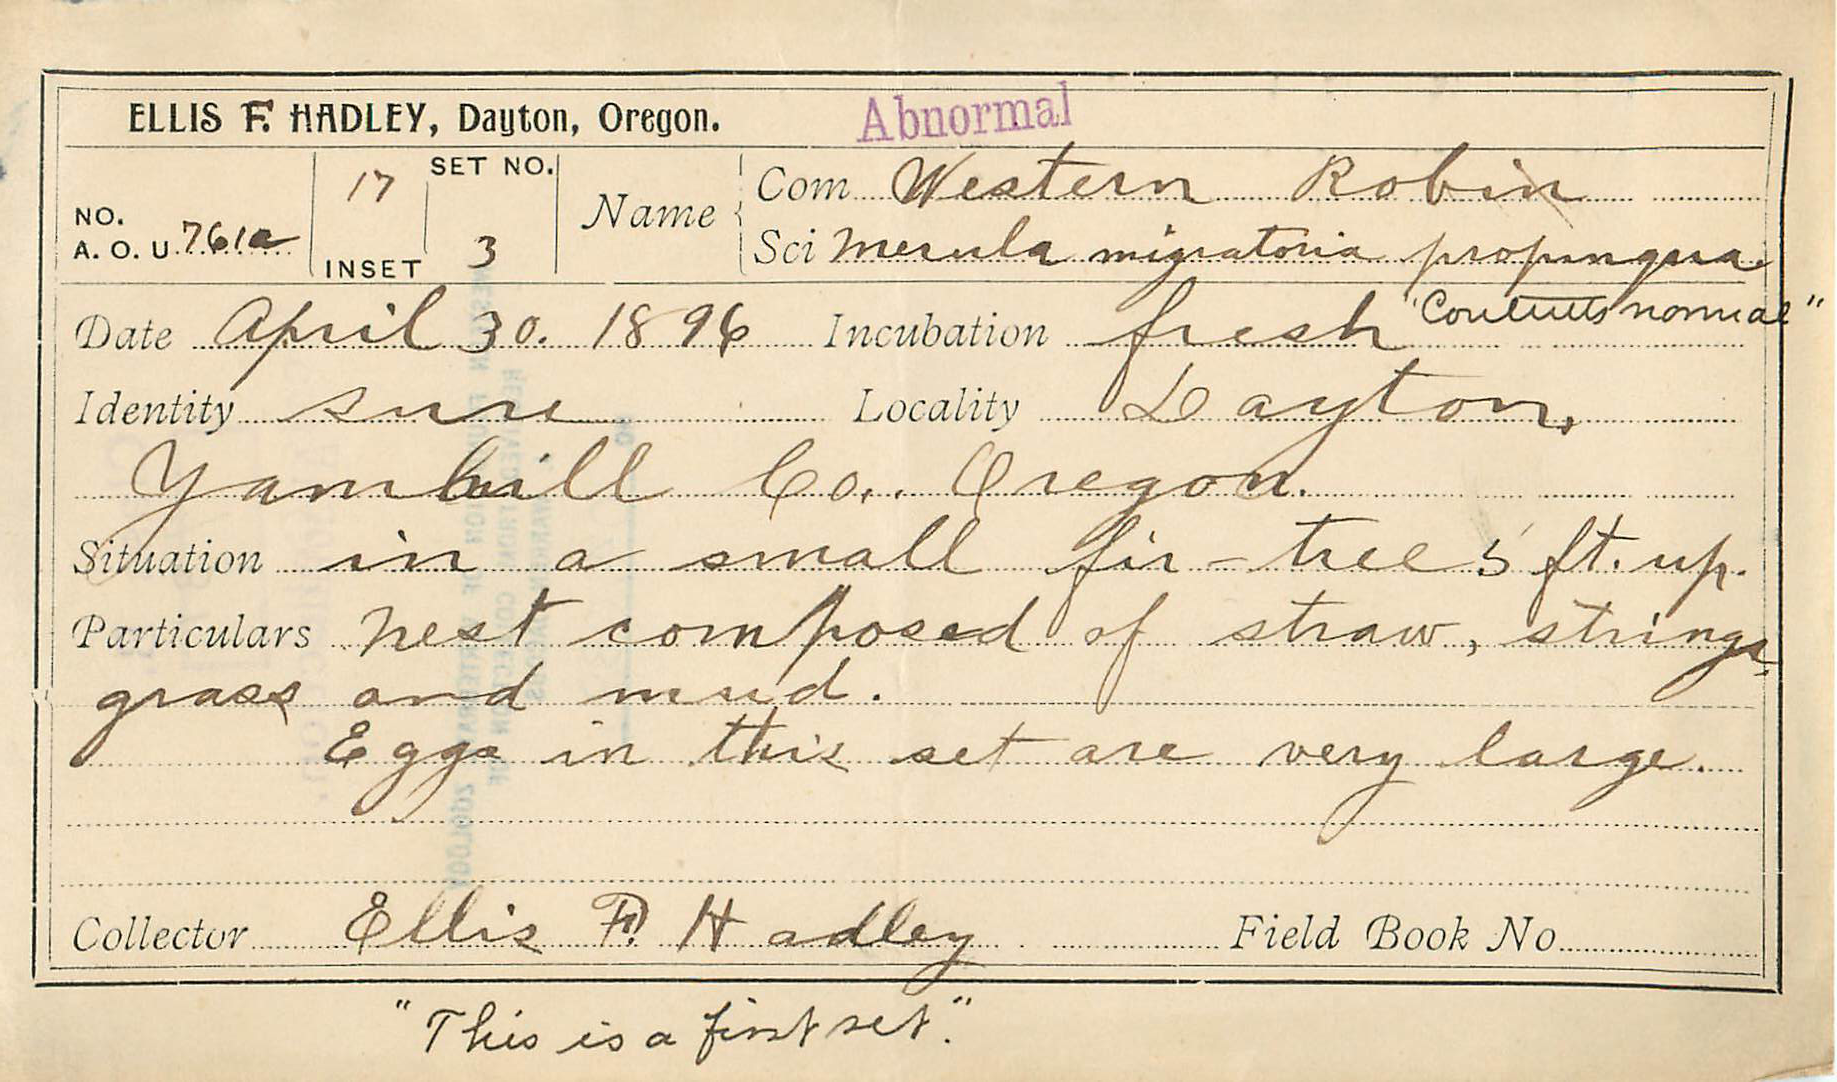 ELLIS F. HADLEY, Dayton, Oregon.
Abnormal
NO.
A. O. U. 761a
17
SET NO.
INSET 3
Name
Com Western Robin
Sci Merula migratoria propinqua
Date April 30. 1896 Incubation fresh "Contents normal"
Identity sure Locality Dayton,
Yamhill Co., Oregon.
Situation in a small fir-tree 5 ft. up.
Particulars Nest composed of straw, strings,
grass and mud.
Eggs in this set are very large.
Collector Ellis F. Hadley Field Book No
"This is a first set".